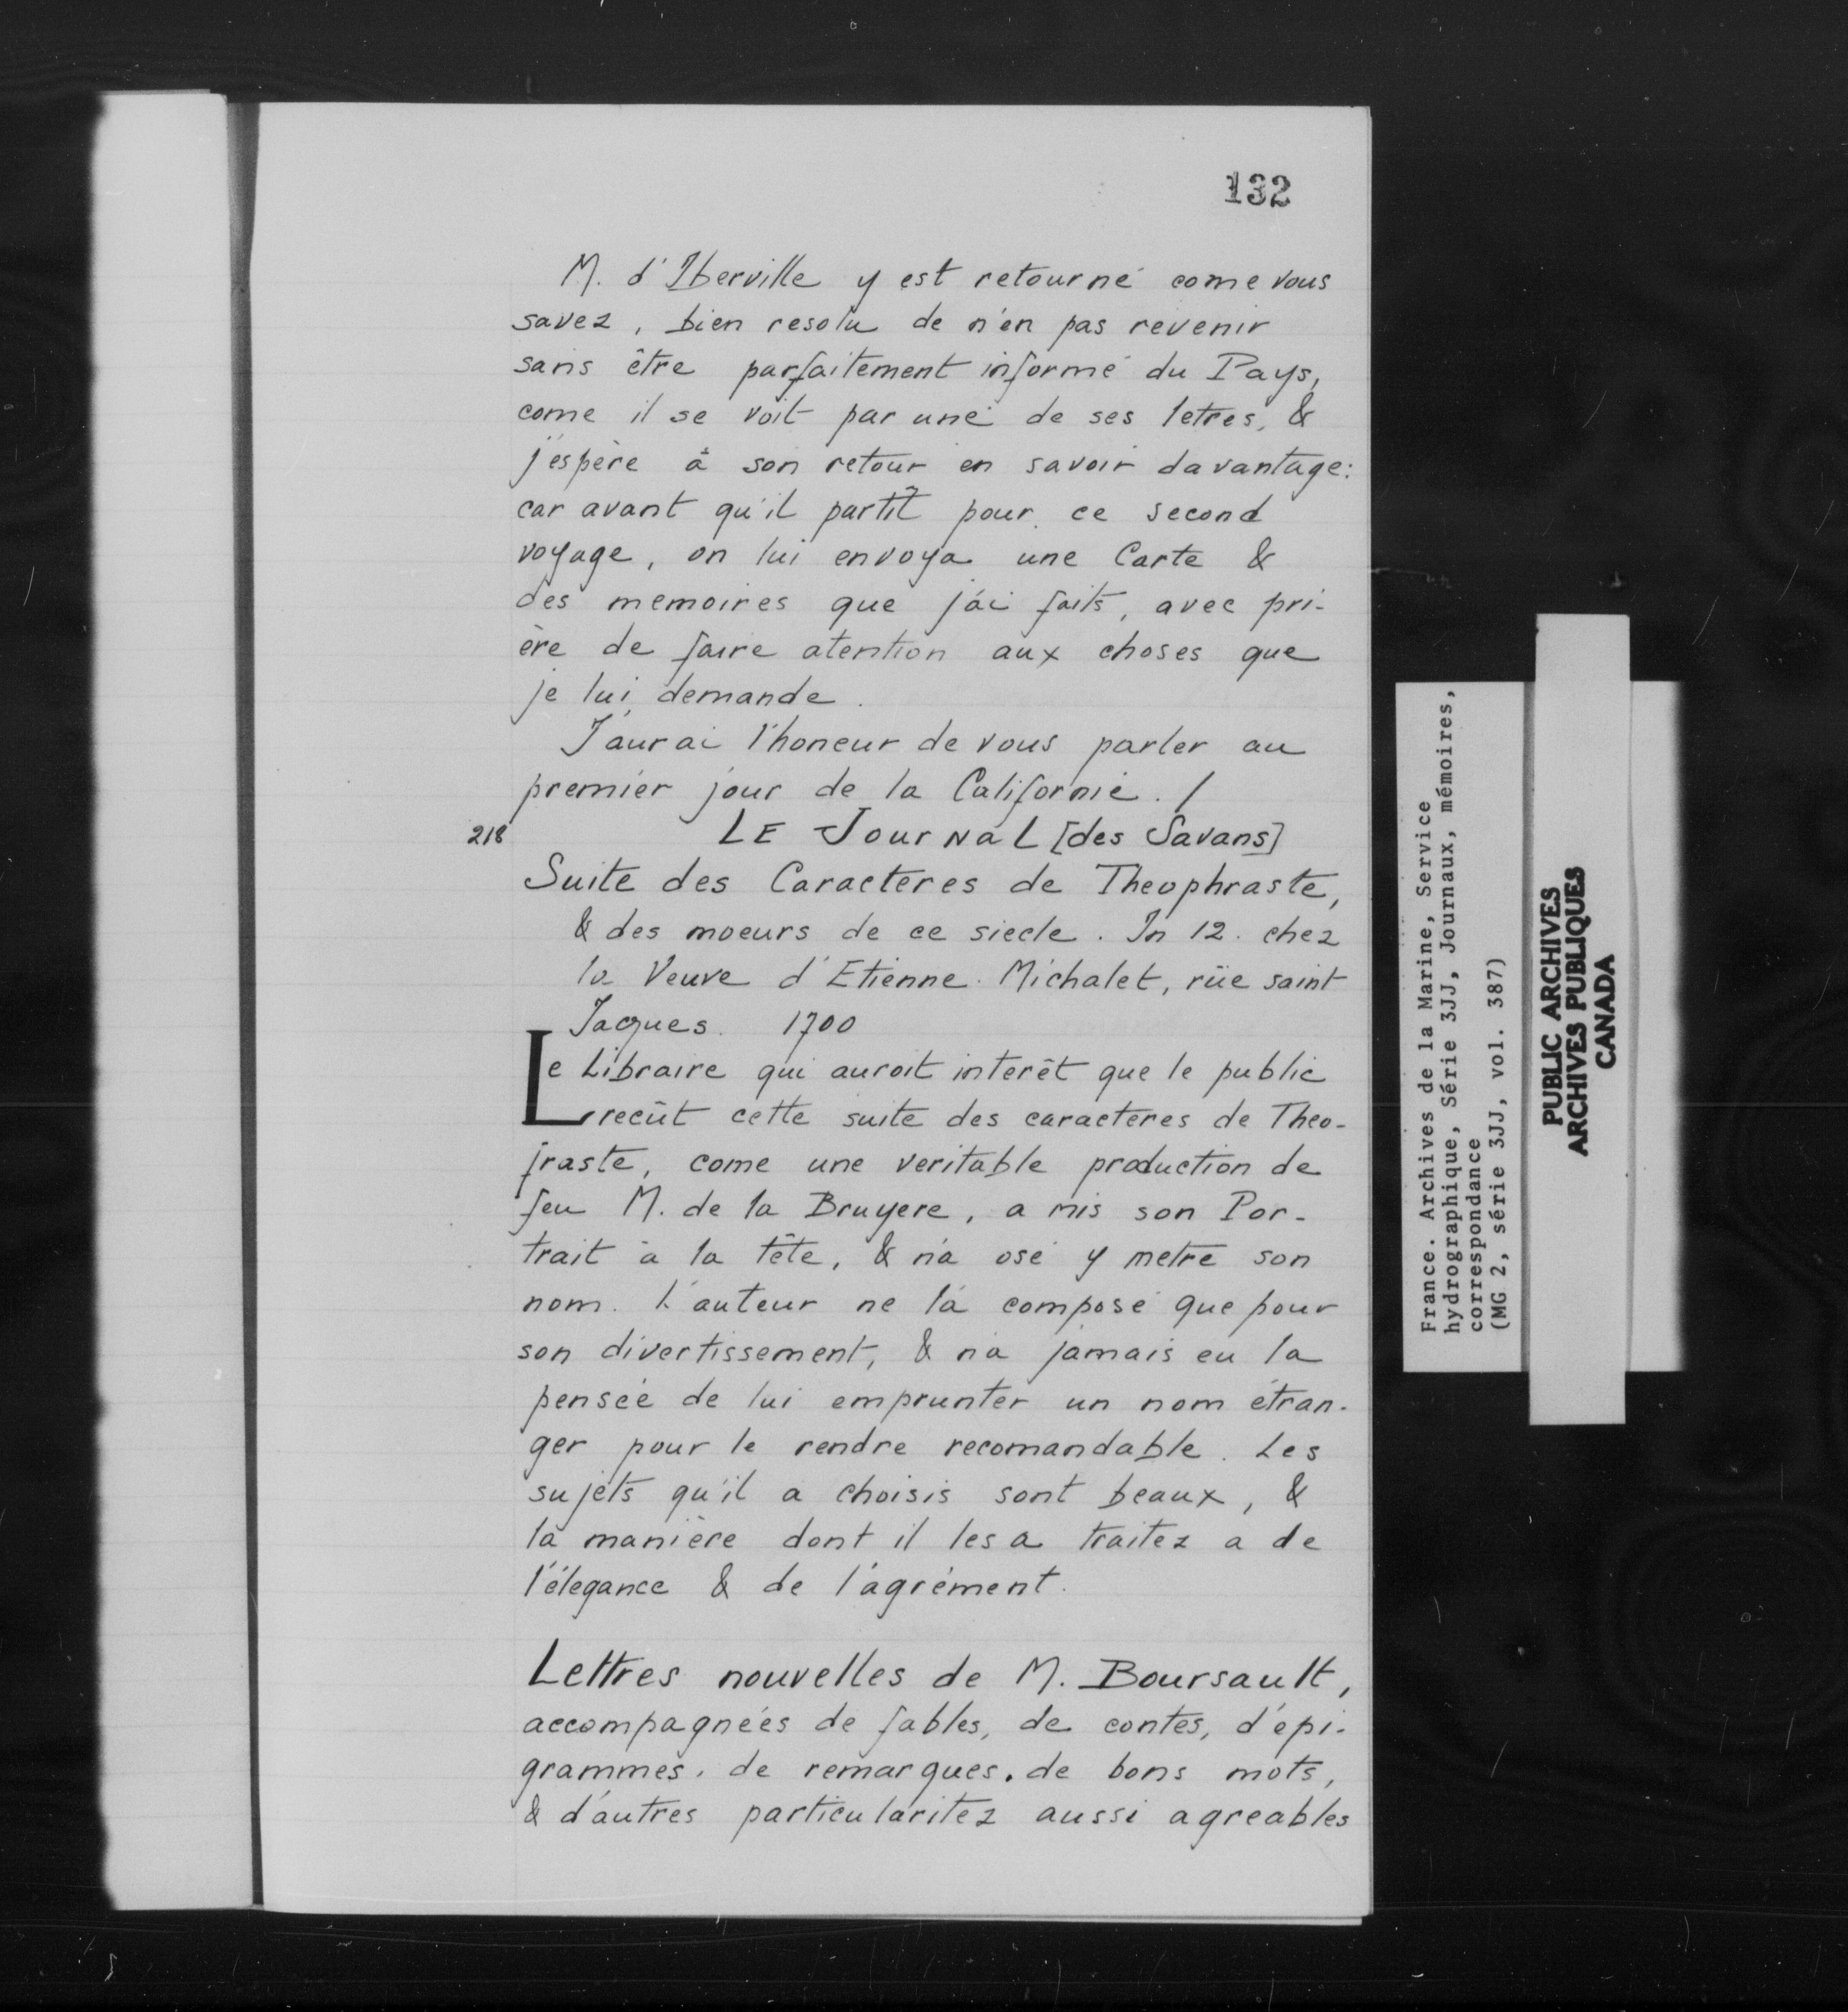 132
M. d'Iberville y est retourné come vous
savez, bien resolu de n'en pas revenir
sans être parfaitement informé du Pays,
come il se voit par une de ses letres, &
j'espère à son retour en savoir davantage:
car avant qu'il partît pour ce second
voyage, on lui envoya une Carte &
des memoires que j'ai faits, avec pri-
ère de faire atention aux choses que
je lui demande.
J'aurai l'honeur de vous parler au
premier jour de la Californie. /
218 LE JOURNAL [des Savans]
Suite des Caracteres de Theophraste,
& des moeurs de ce siecle. In 12. chez
la Veuve d'Etienne Michalet, rüe saint
Jaques. 1700
Le Libraire qui auroit interêt que le public
recût cette suite des caracteres de Theo-
fraste, come une veritable production de
feu M. de la Bruyere, a mis son Por-
trait à la tête, & n'a osé y metre son
nom. L'auteur ne l'a composé que pour
son divertissement, & n'a jamais eu la
pensée de lui emprunter un nom étran-
ger pour le rendre recomandable. Les
sujets qu'il a choisis sont beaux, &
la manière dont il les a traitez a de
l'élegance & de l'agrément.
Lettres nouvelles de M. Boursault,
accompagnées de fables, de contes, d'épi-
grammes, de remarques, de bons mots,
& d'autres particularitez aussi agreables
France. Archives de la Marine, Service
hydrographique, Série 3JJ, Journaux, mémoires,
correspondance
(MG 2, série 3JJ, vol. 387)
PUBLIC ARCHIVES
ARCHIVES PUBLIQUES
CANADA